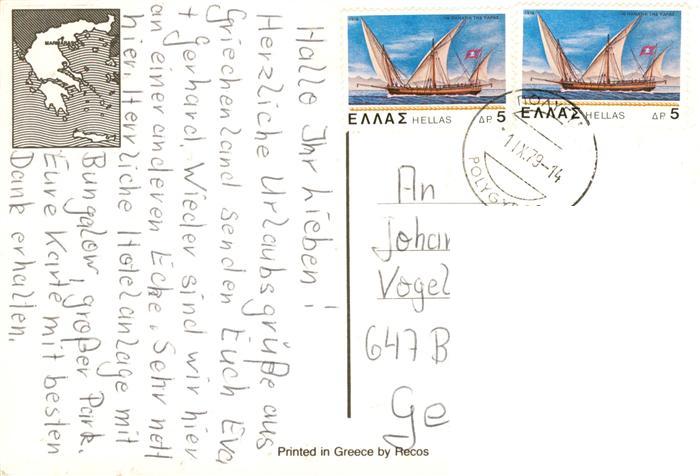 Hallo Ihr Lieben!
Herzliche Urlaubsgrüße aus
Griechenland senden Euch Eva
+ Gerhard. Wieder sind wir hier
an einer anderen Ecke. Sehr nett
hier. Herrliche Hotelanlage mit
Bungalow, großer Park.
Eure Karte mit besten
Dank erhalten.
ΕΛΛΑΣ HELLAS ΔΡ 5
ΕΛΛΑΣ HELLAS ΔΡ 5
1.IX.79-14
An
Johan
Vogel
647 B
Ge
Printed in Greece by Recos